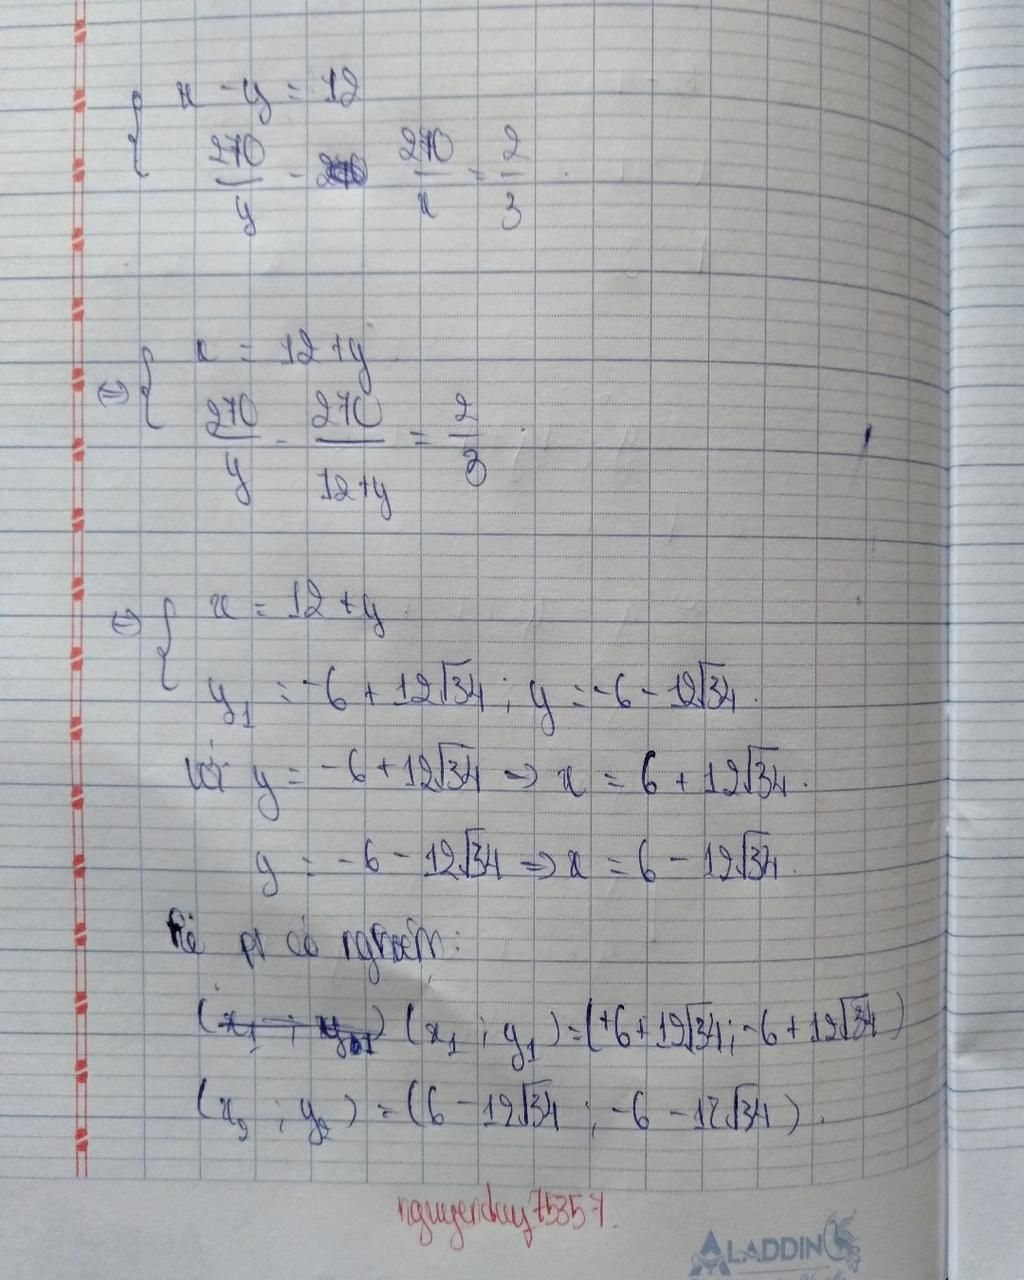 { x - y = 12
270/y - 270/x = 2/3
⇔ { x = 12 + y
270/y - 270/12+y = 2/3
⇔ { x = 12 + y
y₁ = -6 + 12√34 ; y = -6 - 12√34.
Với y = -6 + 12√34 => x = 6 + 12√34.
y = -6 - 12√34 => x = 6 - 12√34.
pt có nghiệm:
(x₁ ; y₁) = (+6 + 12√34 ; -6 + 12√34)
(x₂ ; y₂) = (6 - 12√34 ; -6 - 12√34).
nguyenduy75357.
ALADDIN